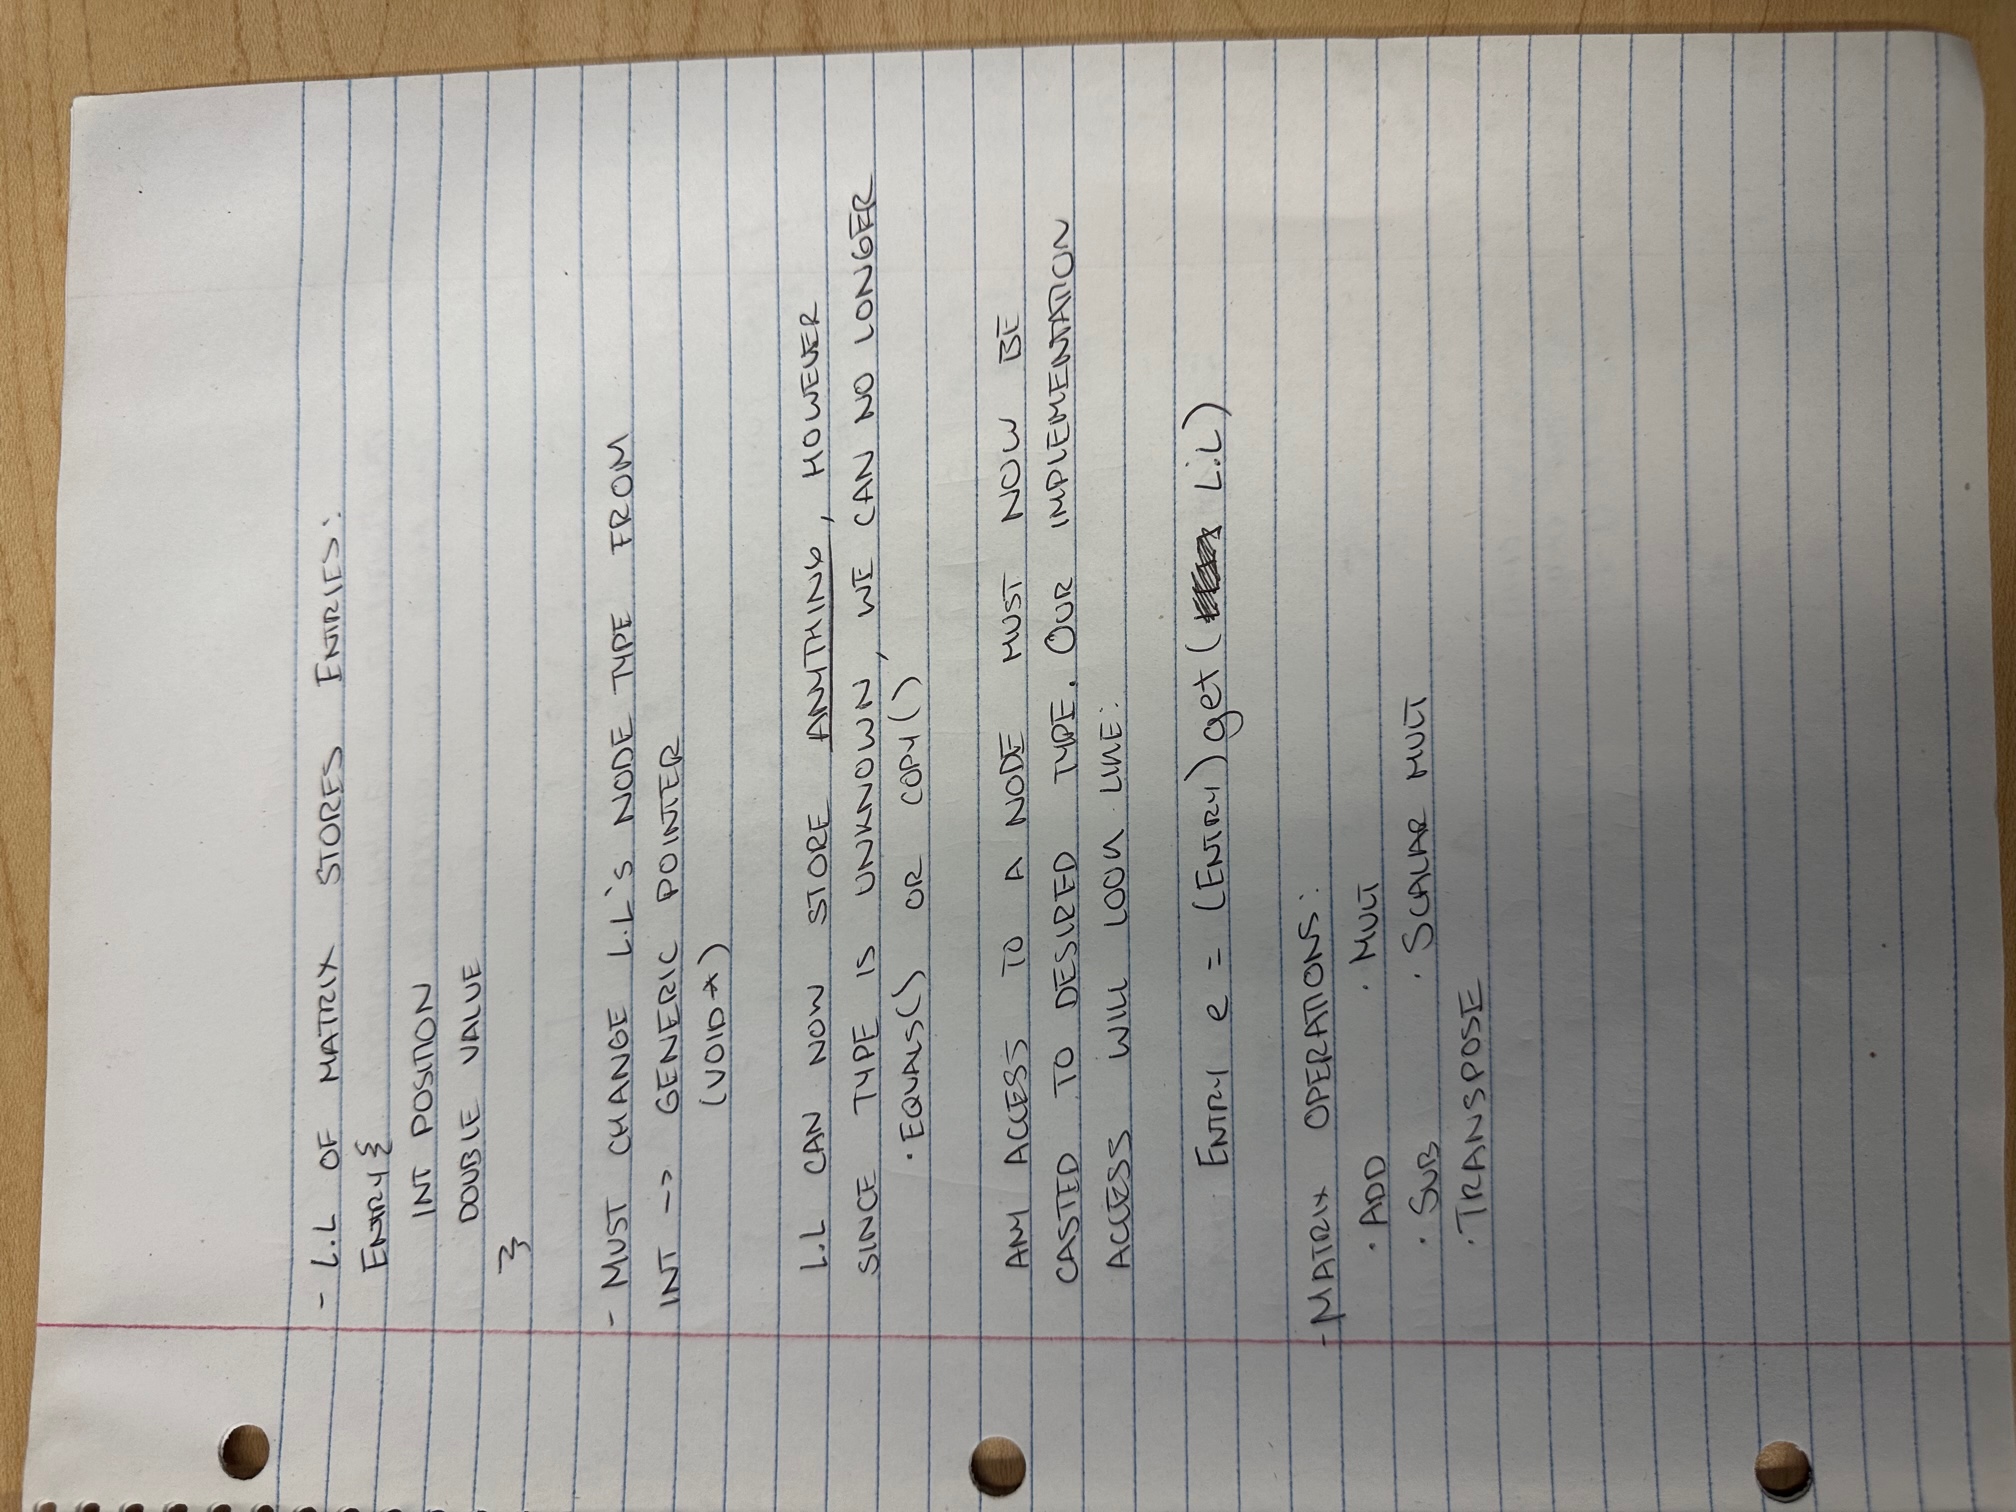 - L.L OF MATRIX STORES ENTRIES:
ENTRY {
INT POSITION
DOUBLE VALUE
}
- MUST CHANGE L.L'S NODE TYPE FROM
INT -> GENERIC POINTER
(VOID *)
L.L CAN NOW STORE ANYTHING, HOWEVER
SINCE TYPE IS UNKNOWN, WE CAN NO LONGER
· EQUALS() OR COPY()
ANY ACCESS TO A NODE MUST NOW BE
CASTED TO DESIRED TYPE. OUR IMPLEMENTATION
ACCESS WILL LOOK LIKE:
ENTRY e = (ENTRY) get( L.L)
- MATRIX OPERATIONS:
· ADD · MULT
· SUB · SCALAR MULT
· TRANSPOSE